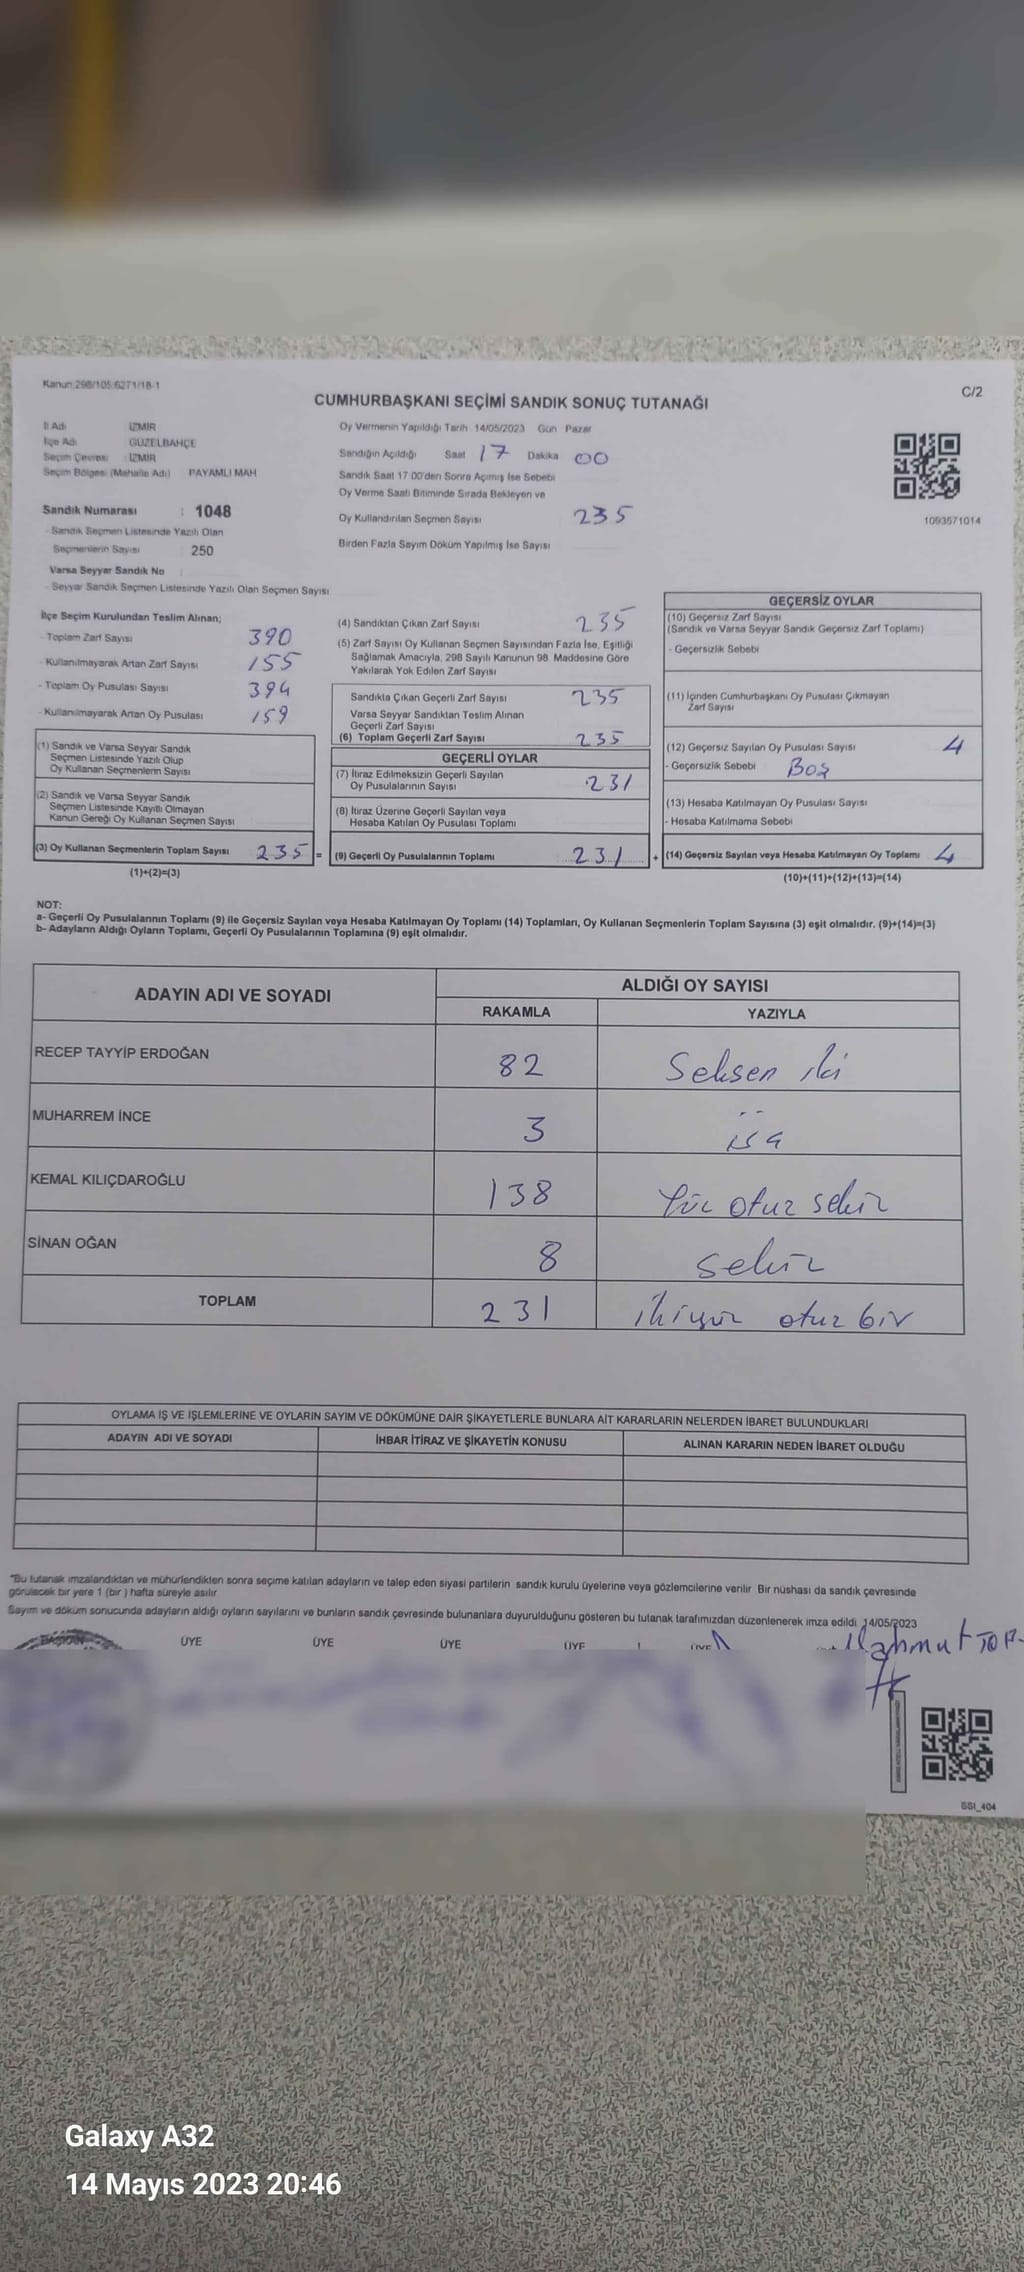 Kanun 298/105 6271/18-1
C/2
CUMHURBAŞKANI SEÇİMİ SANDIK SONUÇ TUTANAĞI
İl Adı : İZMİR
İlçe Adı : GÜZELBAHÇE
Seçim Çevresi : İZMİR
Seçim Bölgesi (Mahalle Adı) PAYAMLI MAH
Sandık Numarası : 1048
- Sandık Seçmen Listesinde Yazılı Olan
Seçmenlerin Sayısı : 250
Varsa Seyyar Sandık No
- Seyyar Sandık Seçmen Listesinde Yazılı Olan Seçmen Sayısı
Oy Vermenin Yapıldığı Tarih 14/05/2023 Gün Pazar
Sandığın Açıldığı Saat 17 Dakika 00
Sandık Saat 17 00'den Sonra Açılmış İse Sebebi
Oy Verme Saati Bitiminde Sırada Bekleyen ve
Oy Kullandırılan Seçmen Sayısı 235
Birden Fazla Sayım Döküm Yapılmış İse Sayısı
1093571014
İlçe Seçim Kurulundan Teslim Alınan;
- Toplam Zarf Sayısı 390
- Kullanılmayarak Artan Zarf Sayısı 155
- Toplam Oy Pusulası Sayısı 394
- Kullanılmayarak Artan Oy Pusulası 159
(1) Sandık ve Varsa Seyyar Sandık
Seçmen Listesinde Yazılı Olup
Oy Kullanan Seçmenlerin Sayısı
(2) Sandık ve Varsa Seyyar Sandık
Seçmen Listesinde Kayıtlı Olmayan
Kanun Gereği Oy Kullanan Seçmen Sayısı
(3) Oy Kullanan Seçmenlerin Toplam Sayısı 235 =
(1)+(2)=(3)
(4) Sandıktan Çıkan Zarf Sayısı 235
(5) Zarf Sayısı Oy Kullanan Seçmen Sayısından Fazla İse, Eşitliği
Sağlamak Amacıyla, 298 Sayılı Kanunun 98 Maddesine Göre
Yakılarak Yok Edilen Zarf Sayısı
Sandıkta Çıkan Geçerli Zarf Sayısı 235
Varsa Seyyar Sandıktan Teslim Alınan
Geçerli Zarf Sayısı
(6) Toplam Geçerli Zarf Sayısı 235
GEÇERLİ OYLAR
(7) İtiraz Edilmeksizin Geçerli Sayılan
Oy Pusulalarının Sayısı 231
(8) İtiraz Üzerine Geçerli Sayılan veya
Hesaba Katılan Oy Pusulası Toplamı
(9) Geçerli Oy Pusulalarının Toplamı 231 +
GEÇERSİZ OYLAR
(10) Geçersiz Zarf Sayısı
(Sandık ve Varsa Seyyar Sandık Geçersiz Zarf Toplamı)
- Geçersizlik Sebebi
(11) İçinden Cumhurbaşkanı Oy Pusulası Çıkmayan
Zarf Sayısı
(12) Geçersiz Sayılan Oy Pusulası Sayısı 4
- Geçersizlik Sebebi Boş
(13) Hesaba Katılmayan Oy Pusulası Sayısı
- Hesaba Katılmama Sebebi
(14) Geçersiz Sayılan veya Hesaba Katılmayan Oy Toplamı 4
(10)+(11)+(12)+(13)=(14)
NOT:
a- Geçerli Oy Pusulalarının Toplamı (9) ile Geçersiz Sayılan veya Hesaba Katılmayan Oy Toplamı (14) Toplamları, Oy Kullanan Seçmenlerin Toplam Sayısına (3) eşit olmalıdır. (9)+(14)=(3)
b- Adayların Aldığı Oyların Toplamı, Geçerli Oy Pusulalarının Toplamına (9) eşit olmalıdır.
ADAYIN ADI VE SOYADI ALDIĞI OY SAYISI
RAKAMLA YAZIYLA
RECEP TAYYİP ERDOĞAN 82 Seksen iki
MUHARREM İNCE 3 üç
KEMAL KILIÇDAROĞLU 138 Yüz otuz sekiz
SİNAN OĞAN 8 sekiz
TOPLAM 231 ikiyüz otuz bir
OYLAMA İŞ VE İŞLEMLERİNE VE OYLARIN SAYIM VE DÖKÜMÜNE DAİR ŞİKAYETLERLE BUNLARA AİT KARARLARIN NELERDEN İBARET BULUNDUKLARI
ADAYIN ADI VE SOYADI İHBAR İTİRAZ VE ŞİKAYETİN KONUSU ALINAN KARARIN NEDEN İBARET OLDUĞU
"Bu tutanak imzalandıktan ve mühürlendikten sonra seçime katılan adayların ve talep eden siyasi partilerin sandık kurulu üyelerine veya gözlemcilerine verilir Bir nüshası da sandık çevresinde
görülecek bir yere 1 (bir ) hafta süreyle asılır
Sayım ve döküm sonucunda adayların aldığı oyların sayılarını ve bunların sandık çevresinde bulunanlara duyurulduğunu gösteren bu tutanak tarafımızdan düzenlenerek imza edildi 14/05/2023
BAŞKAN ÜYE ÜYE ÜYE ÜYE ÜYE Mahmut
SSI_404
Galaxy A32
14 Mayıs 2023 20:46